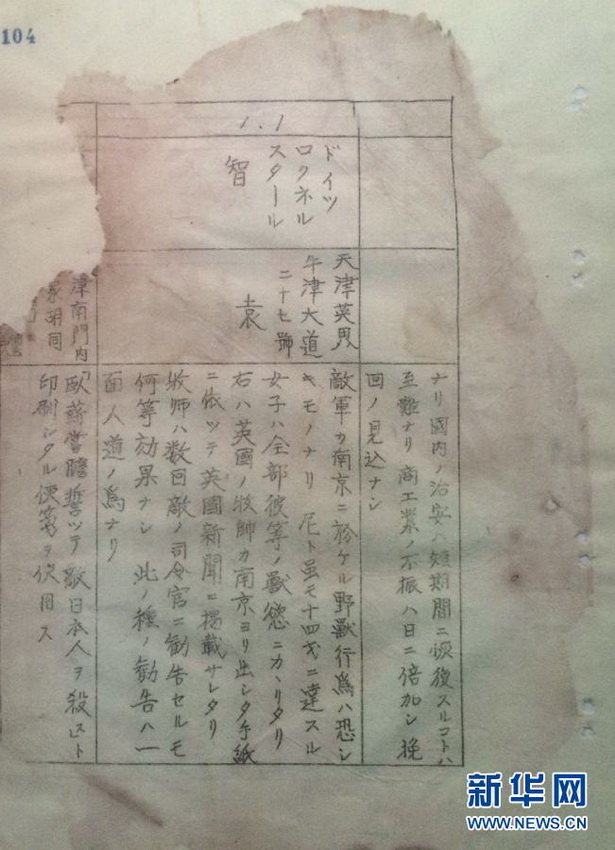 104
ナリ國内ノ治安ハ短期間ニ恢復スルコトハ
至難ナリ商工業ノ不振ハ日ニ倍加シ挽
回ノ見込ナシ
1.1
ドイツ
ロクネル
スタール
智
天津英界
津大道
二十七號
袁
敵軍カ南京ニ於ケル野獣行爲ハ恐シ
キモノナリ 尼ト雖モ十四才ニ達スル
女子ハ全部彼等ノ獸慾ニカヽリタリ
右ハ英國ノ牧師カ南京ヨリ出シタ手紙
ニ依ツテ英國新聞ニ掲載サレタリ
牧師ハ数回敵ノ司令官ニ勧告セルモ
何等効果ナシ 此ノ種ノ勧告ハ一
面人道ノ爲ナリ
津南門内
家胡同
「臥薪嘗膽誓ツテ敵日本人ヲ殺ス」ト
印刷シタル便箋ヲ使用ス
新华网
WWW.NEWS.CN